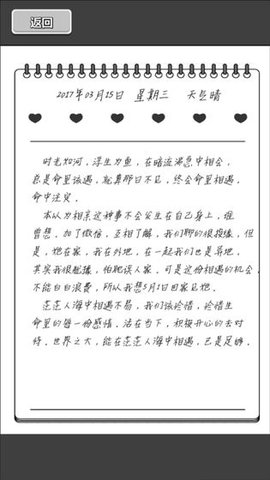 返回
2017年03月15日 星期三 天气晴
时光如河，浮生为鱼，在暗流湍急中相会，
总是命里该遇，就算那日不见，终会命里相遇，
命中注定。
本以为相亲这种事不会发生在自己身上，谁
曾想，加了微信，互相了解，我们聊的很投缘，但
是，她在家，我在外地，在一起我们也是异地。
其实我很犹豫，怕耽误人家，可是这份相遇的机会
不能白白浪费，所以我想5月1日回家见她。
茫茫人海中相遇不易，我们该珍惜，珍惜生
命里的每一份感情，活在当下，积极开心的去对
待。世界之大，能在茫茫人海中相遇，已是足够。